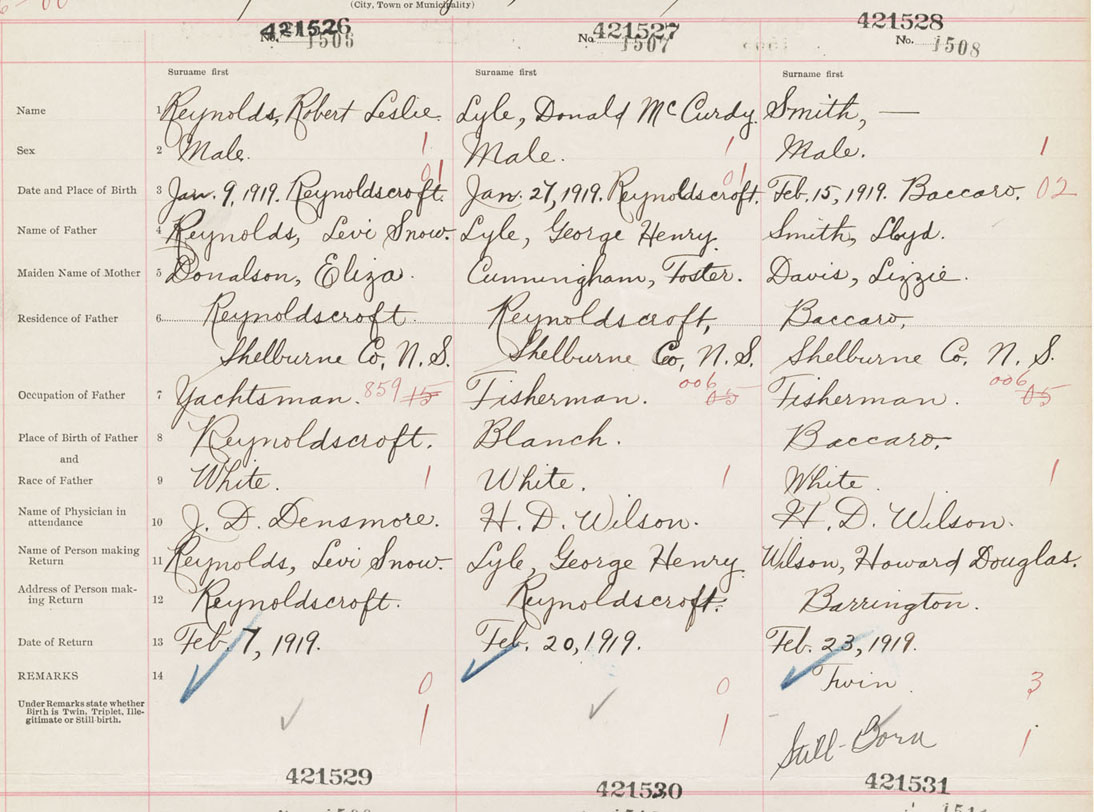 (City, Town or Municipality)
421526 421527 421528
No. 1506 No. 1507 No. 1508
Surname first Surname first Surname first
Name 1 Reynolds, Robert Leslie. Lyle, Donald McCurdy. Smith, —
Sex 2 Male. 1 Male. 1 Male. 1
01 01
Date and Place of Birth 3 Jan. 9, 1919. Reynoldscroft. Jan. 27, 1919. Reynoldscroft. Feb. 15, 1919. Baccaro. 02
Name of Father 4 Reynolds, Levi Snow. Lyle, George Henry. Smith, Lloyd.
Maiden Name of Mother 5 Donalson, Eliza. Cunningham, Foster. Davis, Lizzie.
Residence of Father 6 Reynoldscroft Reynoldscroft, Baccaro,
Shelburne Co, N. S. Shelburne Co, N. S. Shelburne Co, N. S.
Occupation of Father 7 Yachtsman. 859 15 Fisherman. 006 05 Fisherman. 006 05
Place of Birth of Father 8 Reynoldscroft. Blanch. Baccaro,
and
Race of Father 9 White. 1 White. 1 White. 1
Name of Physician in
attendance 10 J. D. Densmore. H. D. Wilson. H. D. Wilson.
Name of Person making
Return 11 Reynolds, Levi Snow. Lyle, George Henry. Wilson, Howard Douglas.
Address of Person mak-
ing Return 12 Reynoldscroft. Reynoldscroft. Barrington.
Date of Return 13 Feb. 7, 1919. Feb. 20, 1919. Feb. 23, 1919.
REMARKS 14 0 0 Twin 3
Under Remarks state whether
Birth is Twin, Triplet, Ille-
gitimate or Still-birth.
1 1 Still-Born 1
421529 421530 421531